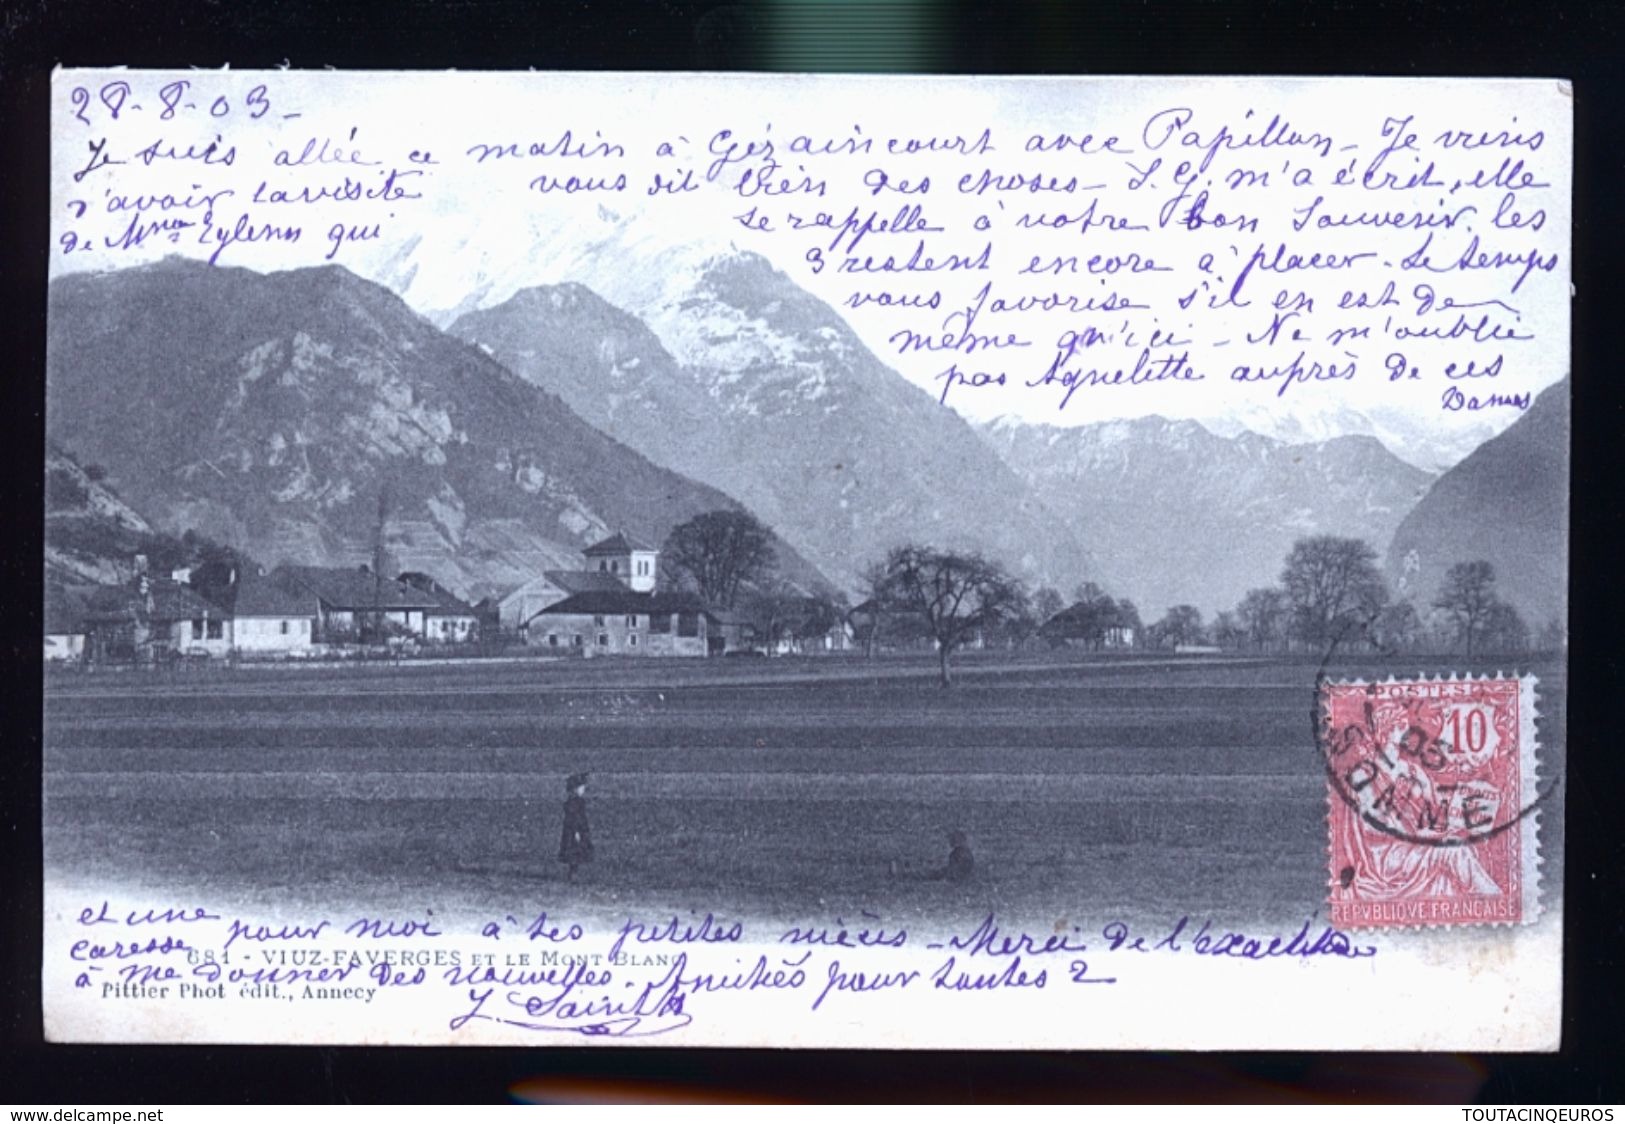 28-8-03-
Je suis allée ce matin à Gézaincourt avec Papillon - Je viens
d'avoir la visite
de Mme Eylenn qui
vous dit bien des choses - J. G. m'a écrit, elle
se rappelle à votre bon souvenir. les
3 restent encore à placer - Le temps
vous favorise s'il en est de
même qu'ici - Ne m'oublie
pas Agnelette auprès de ces
Dames
et une caresse pour moi à tes petites nièces - Merci de l'exactitude
à me donner des nouvelles. Amitiés pour toutes 2
J. Saint
681 - VIUZ-FAVERGES ET LE MONT BLANC
Pittier Phot édit., Annecy
POSTES
10
SOMME
REPVBLIQVE FRANÇAISE
www.delcampe.net
TOUTACINQEUROS